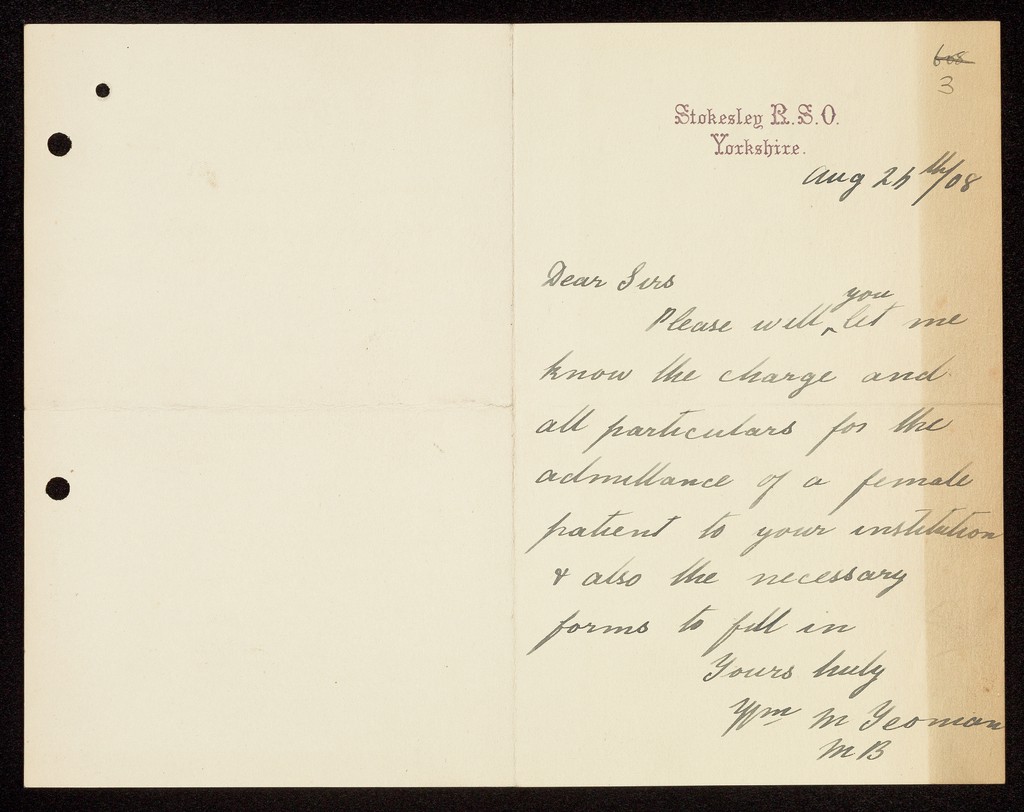 608
3
Stokesley R.S.O.
Yorkshire.
Aug 26th/08
Dear Sirs
Please will you let me
know the charge and
all particulars for the
admittance of a female
patient to your institution
& also the necessary
forms to fill in
Yours truly
Wm M Yeoman
MB